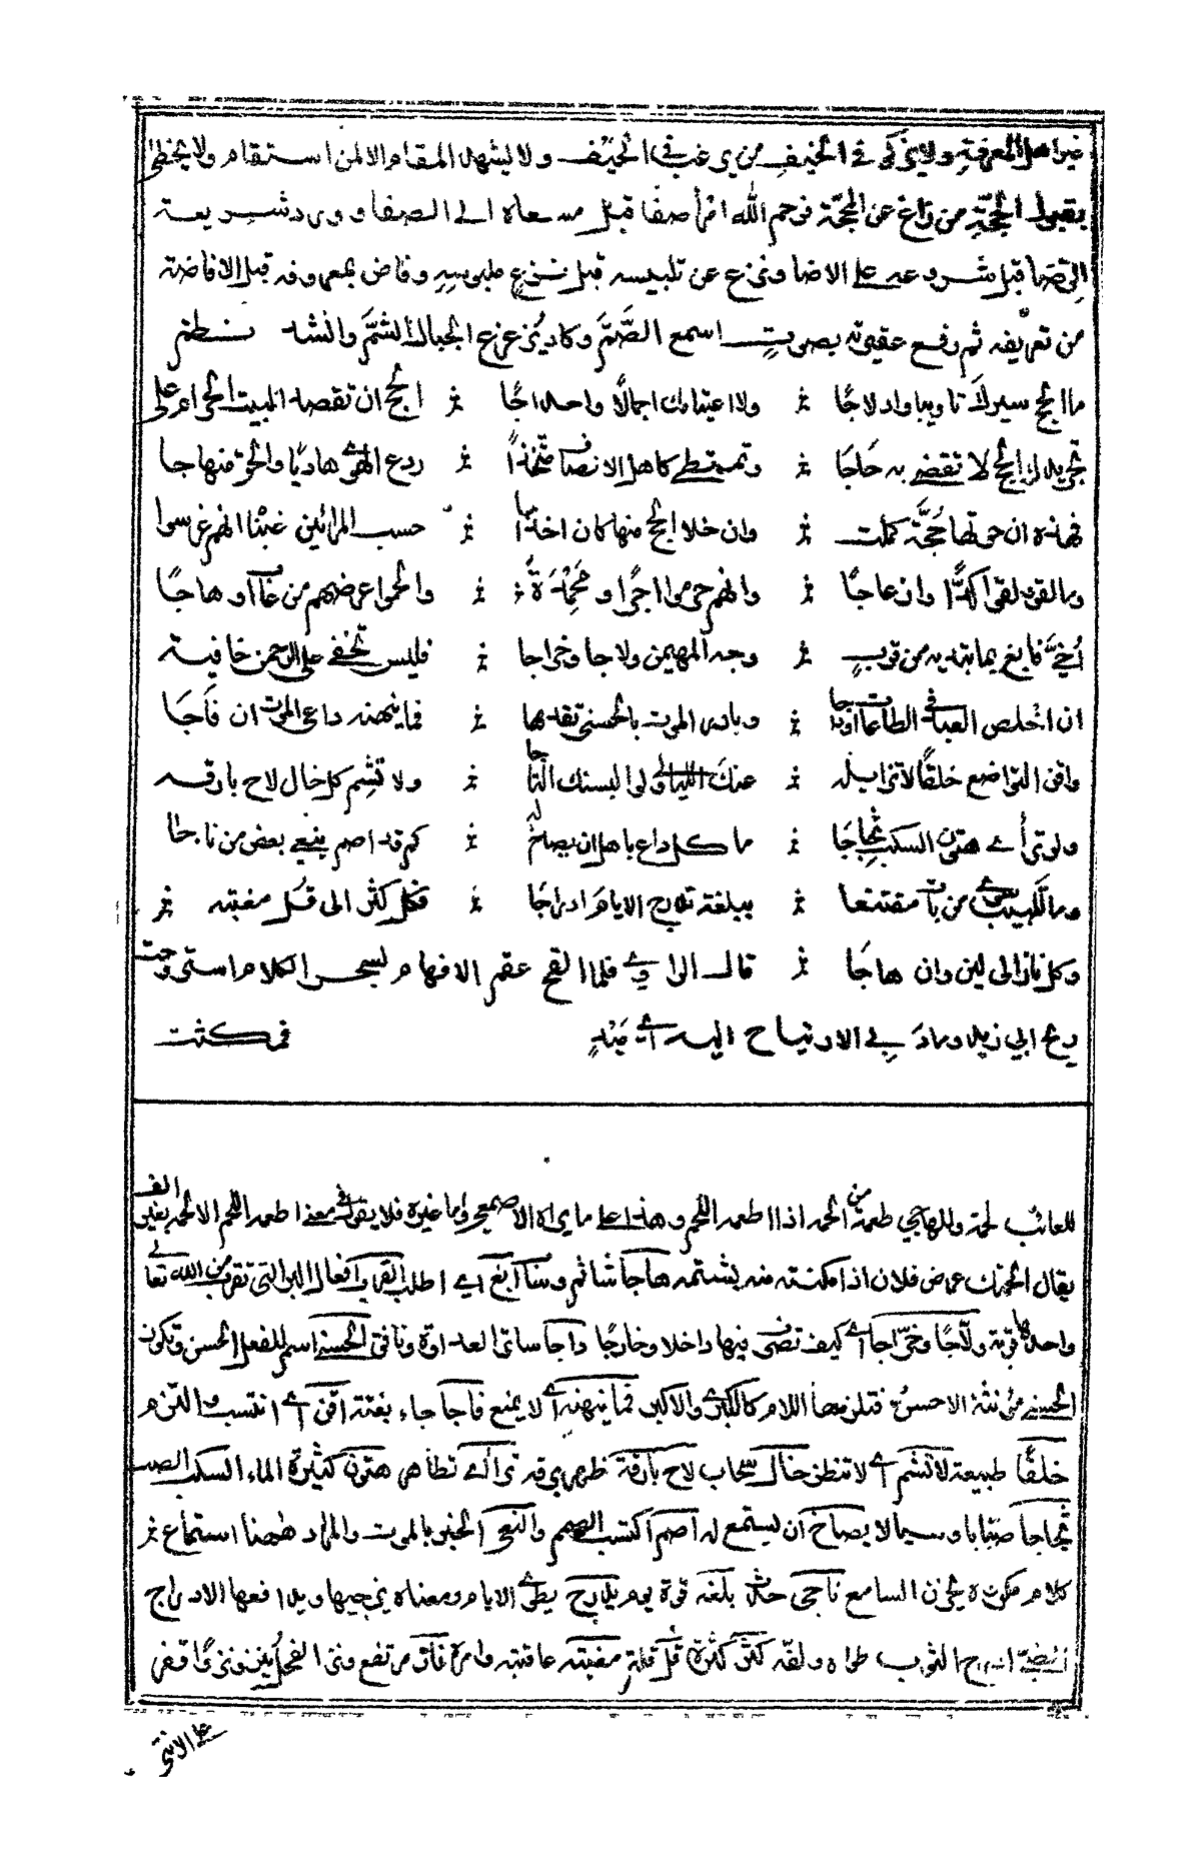 غير اهل المعرفة ولا يزكى في الخيف من يرغب في الحيف ولا يشهد المقام الا لمن استقام ولا يحظى
بقبول الحجة من زاغ عن المحجة فرحم الله امرأ صفا قبل مسعاه الى الصفا وورد شريعة
الرضا قبل شروعه على الاضا ونزع عن تلبيسه قبل نزع ملبوسه وفاض بمعروفه قبل الافاضة
من تعريفه ثم رفع عقيرته بصوت اسمع الصم وكاد يزعزع الجبال الشم وانشد نظم
ما الحج سيرك تاويبا وادلاجا ولا اعتيامك اجمالا واحداجا الحج ان تقصد البيت الحرام على
تجريدك الحج لا تقضى به حاجا وتمتطى كاهل الانصاف متخذا ردع الهوى هاديا والحق منهاجا
فهذه ان حوتها حجة كملت وان خلا الحج منها كان اخداجا حسب المرائين غبنا انهم غرسوا
وما لقوا كدا وان عاجا وانهم حرموا اجرا ومحمدة والحموا عرضهم من عاب او هاجا
اخي فابغ بما تبديه من قرب وجه المهيمن ولاجا وخراجا فليس تخفى على الرحمن خافية
ان اخلص العبد في الطاعات او داجا وبادر الموت بالحسنى تقدمها فما ينهنه داعي الموت ان فاجا
واقن التواضع خلقا لا تزايله عنك الليالي ولو البسنك التاجا ولا تشم كل خال لاح بارقه
ولو تراءى هتون السكب ثجاجا ما كل داع باهل ان يصاخ له كم قد اصم بنعي بعض من ناجا
وما اللبيب سوى من بات مقتنعا ببلغة تدرج الايام ادراجا فكل كثر الى قل مغبته
وكل ناز الى لين وان هاجا قال الراوي فلما القح عقم الافهام بسحر الكلام استروحت
ريح ابي زيد وماد بي الارتياح اليه اي ميد فمكثت
للعائب لحمة وللهاجي طعمة من الحمه اذا اطعمه اللحم وهذا على ما يراه الاصمعي واما غيره فلا يقول في معنى اطعمه اللحم الا لحمه بغير الف
يقال الحمتك عرض فلان اذا امكنته منه بشتمه هاجا شاتم وساب ابغ اي اطلب القرب افعال البر التي تقرب من الله تعالى
واحدها قربة ولاجا وخراجا اي كيف تصرف فيها داخلا وخارجا داجا ساتر العداوة ونافق الحسنى اسم للفعل الحسن وتكون
الحسنى مؤنثة الاحسن فتلزمها اللام كالكبرى والاكبر فما ينهنه اي لا يمنع فاجا جاء بغتة اقن اي اكتسب والتزم
خلقا طبيعة لا تشم اي لا تنظر خال سحاب لاح بارقه ظهر برقه تراءى تظاهر هتون كثيرة الماء السكب الصب
ثجاجا صبابا وسيالا يصاخ ان يستمع له اصم اكتسب الصمم والنعي الخبر بالموت والمراد ههنا استماع
كلام مكروه يحزن السامع ناجى حدث بلغة قوة يوم تدرج يطوي الايام ومعناه يزجيها ويدافعها الادراج
ادرج الثوب طواه ولفه كثر كثرة قل قلة مغبته عاقبته وامره ناز مرتفع ونزا الفحل ينزو نزوا قفز
على الانثى